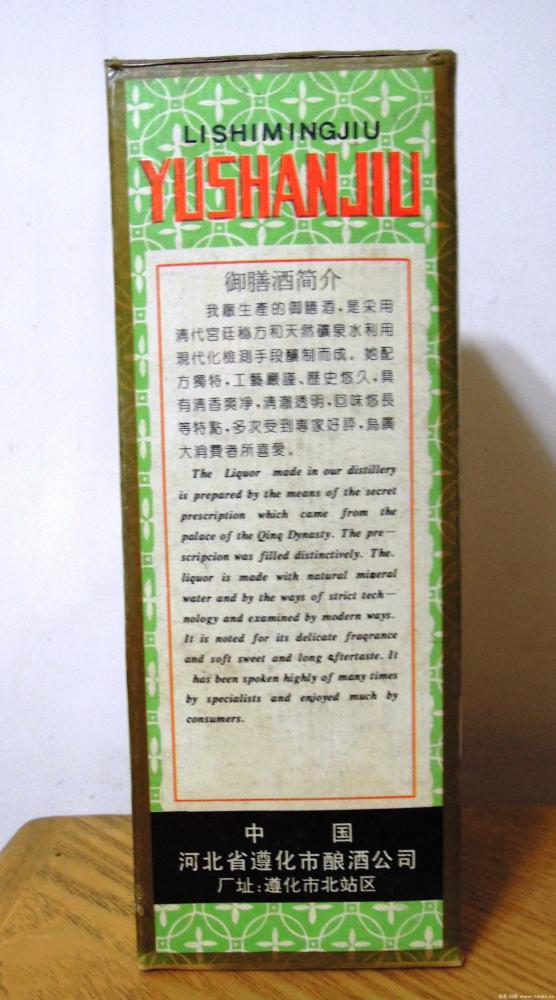 LISHIMINGJIU
YUSHANJIU
御膳酒简介
我廠生產的御膳酒,是采用
清代宮廷秘方和天然礦泉水利用
現代化檢測手段釀制而成。她配
方獨特,工藝嚴謹、歷史悠久,具
有清香爽净,清澈透明,回味悠長
等特點,多次受到專家好評,為廣
大消費者所喜愛。
The Liquor made in our distillery
is prepared by the means of the secret
prescription which came from the
palace of the Qing Dynasty. The pre—
scripcion was filled distinctively. The.
liquor is made with natural mineral
water and by the ways of strict tech—
nology and examined by modern ways.
It is noted for its delicate fragrance
and soft sweet and long aftertaste. It
has been spoken highly of many times
by specialists and enjoyed much by
consumers.
中 国
河北省遵化市酿酒公司
厂址:遵化市北站区